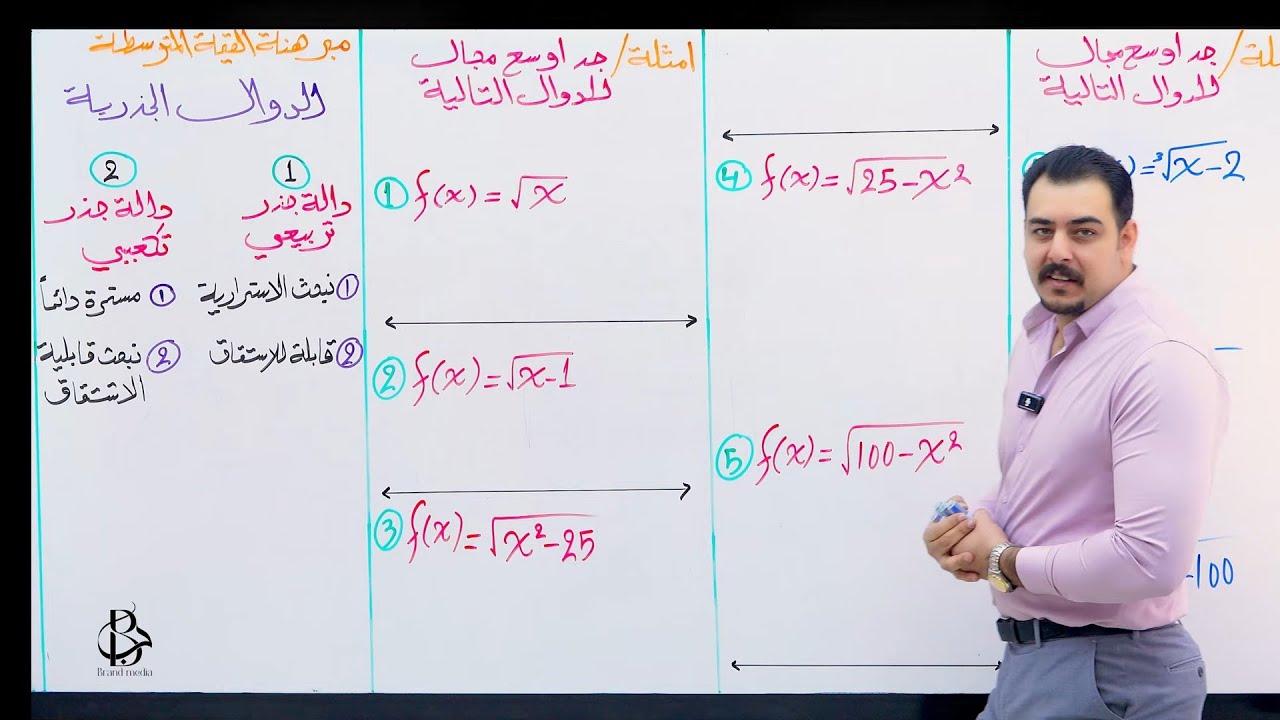 مبرهنة القيمة المتوسطة
الدوال الجذرية
1
دالة جذر
تربيعي
1 نبحث الاسترارية
2 قابلة للاستقاق
2
دالة جذر
تكعيبي
1 مستمرة دائماً
2 نبحث قابلية
الاشتقاق
امثلة / جد اوسع مجال
للدوال التالية
1 f(x)=√x
2 f(x)=√x-1
3 f(x)=√x²-25
4 f(x)=√25-x²
5 f(x)=√100-x²
جد اوسع مجال
للدوال التالية
)=³√x-2
-100
B
Brand media